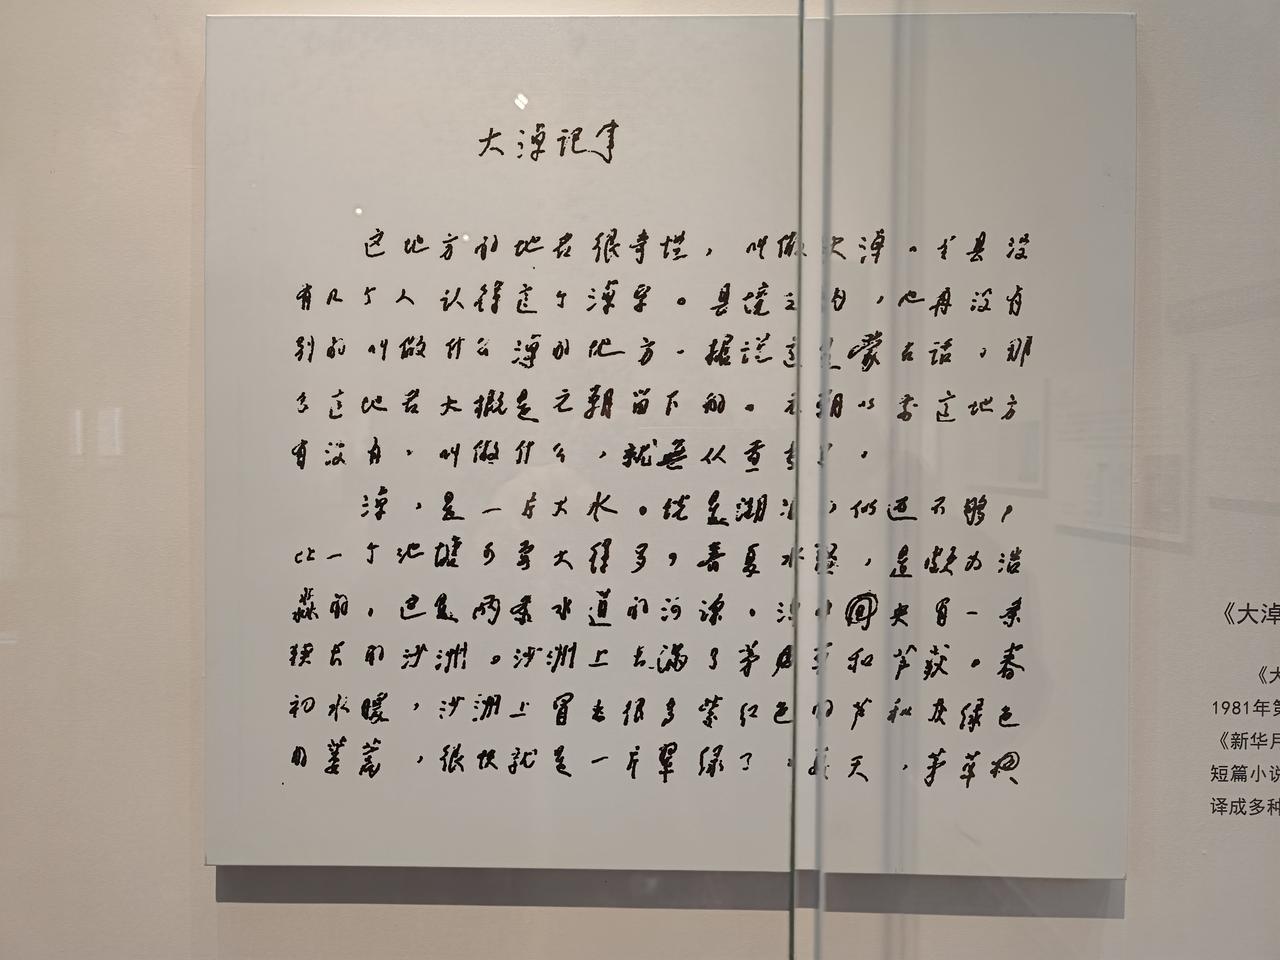 大淖记事
这地方的地名很奇怪，叫做大淖。全县没
有几个人认得这个淖字。县境之内，也再没有
别的叫做什么淖的地方。据说这是蒙古话。那
么这地名大概是元朝留下的。元朝以前这地方
有没有，叫做什么，就无从查考了。
淖，是一片大水。说是湖泊，似还不够，
比一个池塘可要大得多，春夏水盛，是颇为浩
淼的。这是两条水道的河源。淖中央有一条
狭长的沙洲。沙洲上长满了茅草和芦荻。春
初水暖，沙洲上冒出很多紫红色的芦和灰绿色
的蒌蒿，很快就是一片翠绿了。夏天，茅草
《大淖
《大
1981年第
《新华月
短篇小说
译成多种